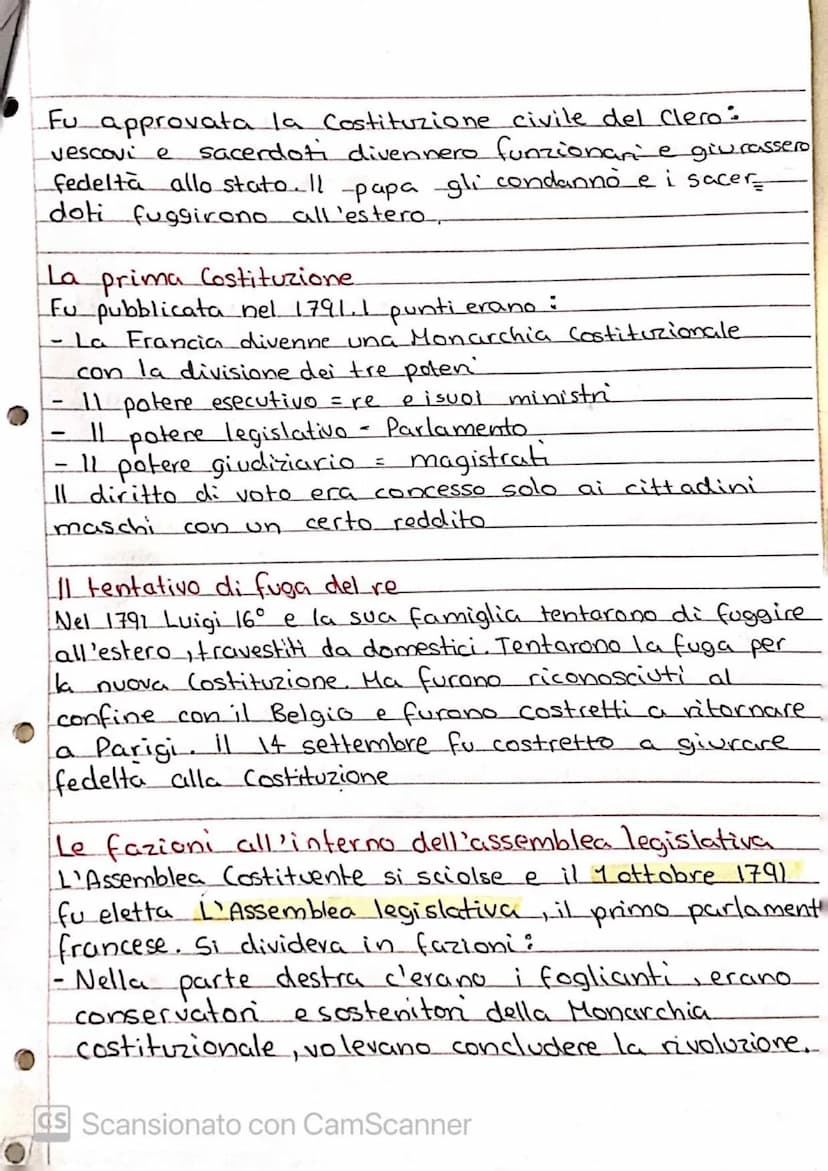 Fu approvata la Costituzione civile del Clero:
vescovi e sacerdoti divennero funzionari e giurassero
fedeltà allo stato. Il papa gli condannò e i sacer=
doti fuggirono all'estero.
La prima Costituzione
Fu pubblicata nel 1791. I punti erano:
- La Francia divenne una Monarchia Costituzionale
con la divisione dei tre poteri
- Il potere esecutivo = re e i suoi ministri
- Il potere legislativo - Parlamento
- Il potere giudiziario = magistrati
Il diritto di voto era concesso solo ai cittadini
maschi con un certo reddito
Il tentativo di fuga del re
Nel 1791 Luigi 16° e la sua famiglia tentarono di fuggire
all'estero, travestiti da domestici. Tentarono la fuga per
la nuova Costituzione. Ma furono riconosciuti al
confine con il Belgio e furono costretti a ritornare
a Parigi. Il 14 settembre fu costretto a giurare
fedeltà alla Costituzione
Le fazioni all'interno dell'assemblea legislativa
L'Assemblea Costituente si sciolse e il 1 ottobre 1791
fu eletta L'Assemblea legislativa, il primo parlament
francese. Si divideva in fazioni:
- Nella parte destra c'erano i foglianti, erano
conservatori e sostenitori della Monarchia
costituzionale, volevano concludere la rivoluzione.
CS Scansionato con CamScanner